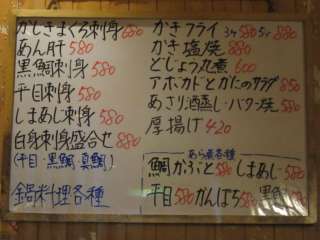 かじきまぐろ刺身 680
あん肝 580
黒鯛刺身 580
平目刺身 580
しまあじ刺身 580
白身刺身盛合せ 880
(平目・黒鯛・真鯛)
鍋料理各種
かきフライ 3ケ 580 5ケ 880
かき塩焼 880
どじょう丸煮 600
アボカドとかにのサラダ 850
あさり酒蒸し・バター焼 580
厚揚げ 420
あら煮各種
鯛かぶと 580 しまあじ 580
平目 580 かんぱち 580 黒鯛